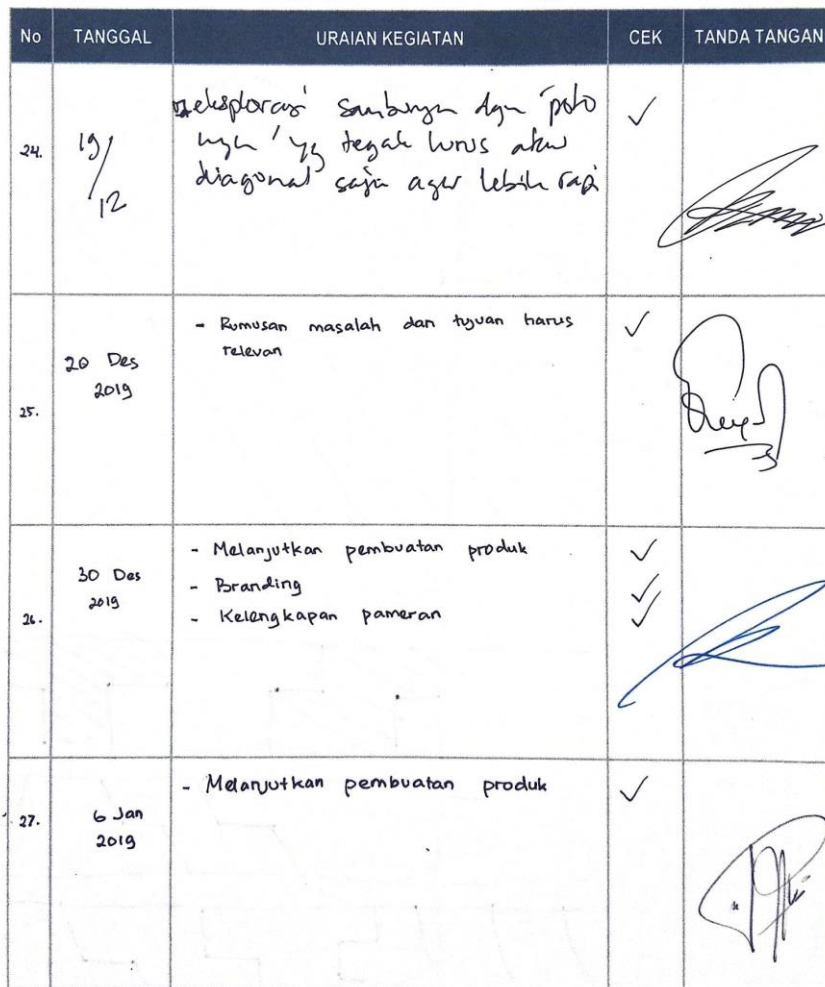 No TANGGAL URAIAN KEGIATAN CEK TANDA TANGAN
24. 19/12 eksplorasi sambungan dgn 'poto
ngan' yg tegak lurus atau
diagonal saja agar lebih rapi
25. 20 Des
2019
- Rumusan masalah dan tujuan harus
relevan
26. 30 Des
2019
- Melanjutkan pembuatan produk
- Branding
- Kelengkapan pameran
27. 6 Jan
2019
- Melanjutkan pembuatan produk